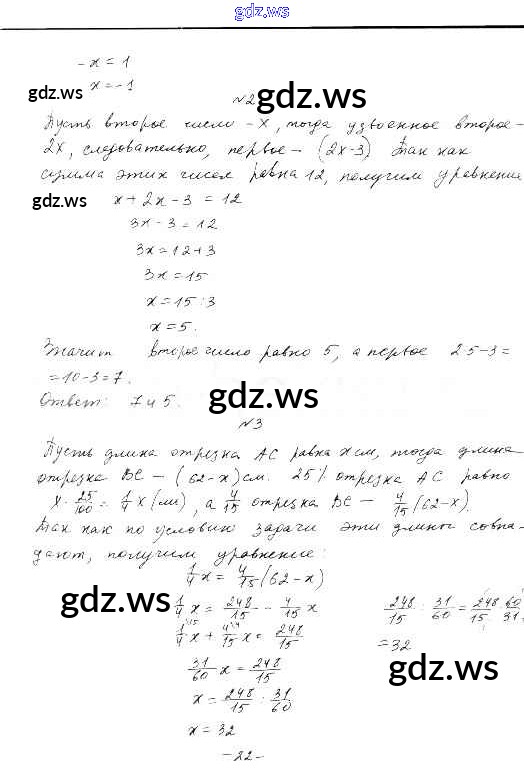 gdz.ws
-x = 1
x = -1
gdz.ws
№2
gdz.ws
Пусть второе число -x, тогда удвоенное второе-
2x, следовательно, первое - (2x-3) Так как
сумма этих чисел равна 12, получим уравнение
gdz.ws
x + 2x - 3 = 12
3x - 3 = 12
3x = 12 + 3
3x = 15
x = 15 : 3
x = 5.
Значит второе число равно 5, а первое 2 5 - 3 =
= 10 - 3 = 7.
Ответ: 7 и 5.
gdz.ws
№3
Пусть длина отрезка AC равна x см, тогда длина
отрезка BC - (62 - x) см. 25% отрезка AC равно
x · 25/100 = 1/4 x (см), а 4/15 отрезка BC - 4/15 (62 - x).
Так как по условию задачи эти длины совпа-
дают, получим уравнение:
1/4 x = 4/15 (62 - x)
gdz.ws
1/4 x = 248/15 - 4/15 x
248/15 : 31/60 = 248/15 · 60/31
1/4 x + 4/15 x = 248/15
= 32
gdz.ws
31/60 x = 248/15
x = 248/15 : 31/60
x = 32
-22-